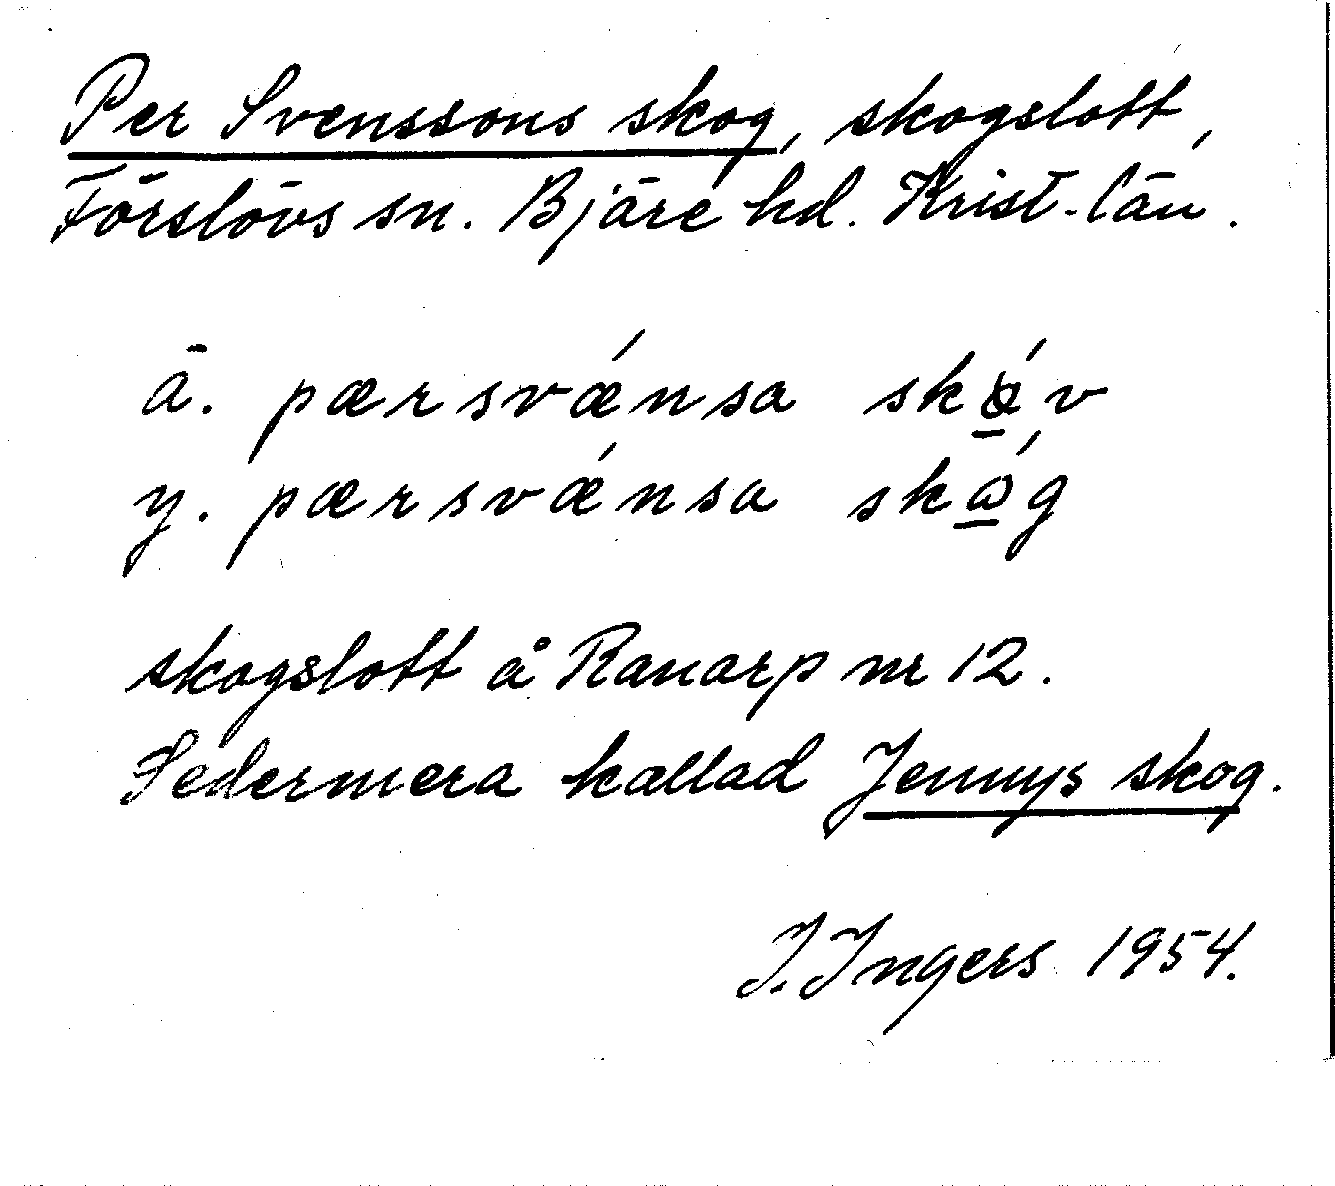 Per Svenssons skog, skogslott,
Förslövs sn. Bjäre hd. Krist. län.
ä. pærsvǽnsa skó̱v
y. pærsvǽnsa skǻ̱g
skogslott å Ranarp nr 12.
Sedermera kallad Jennys skog.
I. Ingers 1954.